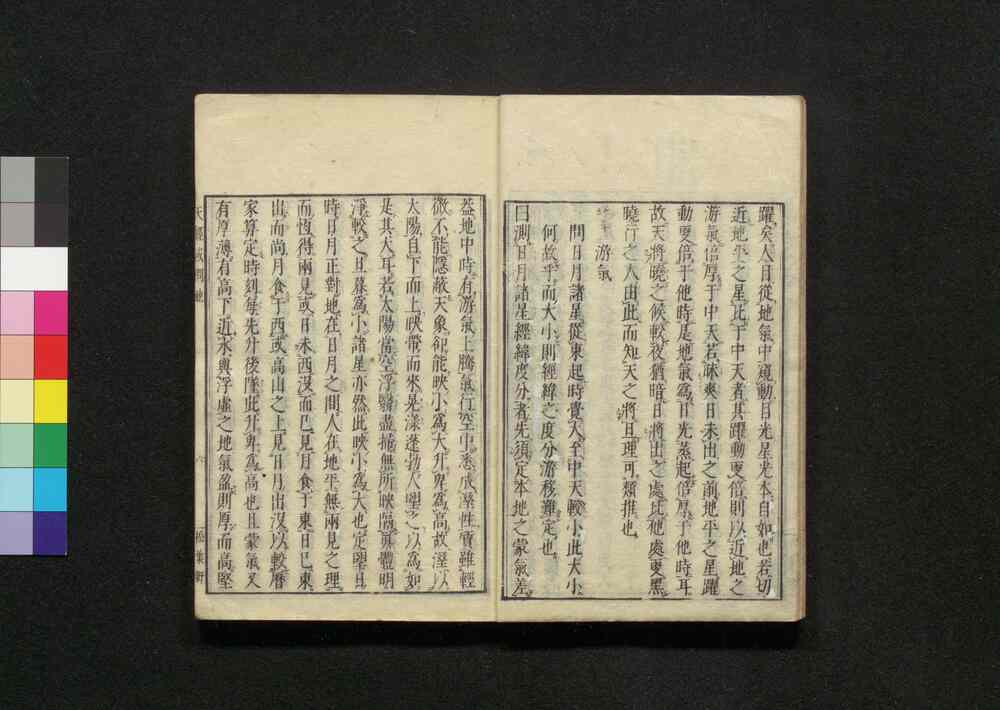 躍矣人目從地氣中窺動目光星光本自如也若切
近地平之星比于中天者其躍動更倍則以近地之
游氣倍厚于中天若昧爽日未出之前地平之星躍
動更倍于他時是地氣為日光蒸起倍厚于他時耳
故天將曉之候較夜猶暗日將出之處比他處更黑
曉行之人由此而知天之將旦理可類推也
游氣
問日月諸星從東起時覺大至中天較小此大小
何故乎而大小則經緯之度分游移難定也
曰測日月諸星經緯度分者先須定本地之蒙氣差
益地中時有游氣上騰氣行空中悉成溼性質雖輕
微不能隱蔽天象卻能映小為大升卑為高故溼以
太陽自下而上映帶而來晃漾蓬勃人望之以為如
是其大耳若太陽當空浮翳盡掃無所映隔眞體明
淨較之旦暮為小諸星亦然此映小為大也定望日
時日月正對地在日月之間人在地平無兩見之理
而恆得兩見或日未西沒而已見月食于東日已東
出而尚月食于西或高山之上見日月出沒以較曆
家算定時刻每先升後墜此升卑為高也且蒙氣又
有厚薄有高下近水與浮虛之地氣盈則厚而高堅
天經或問 六